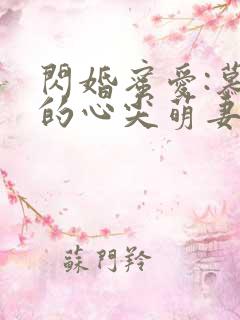 閃婚蜜愛:慕
的心尖萌妻
蘇門羚